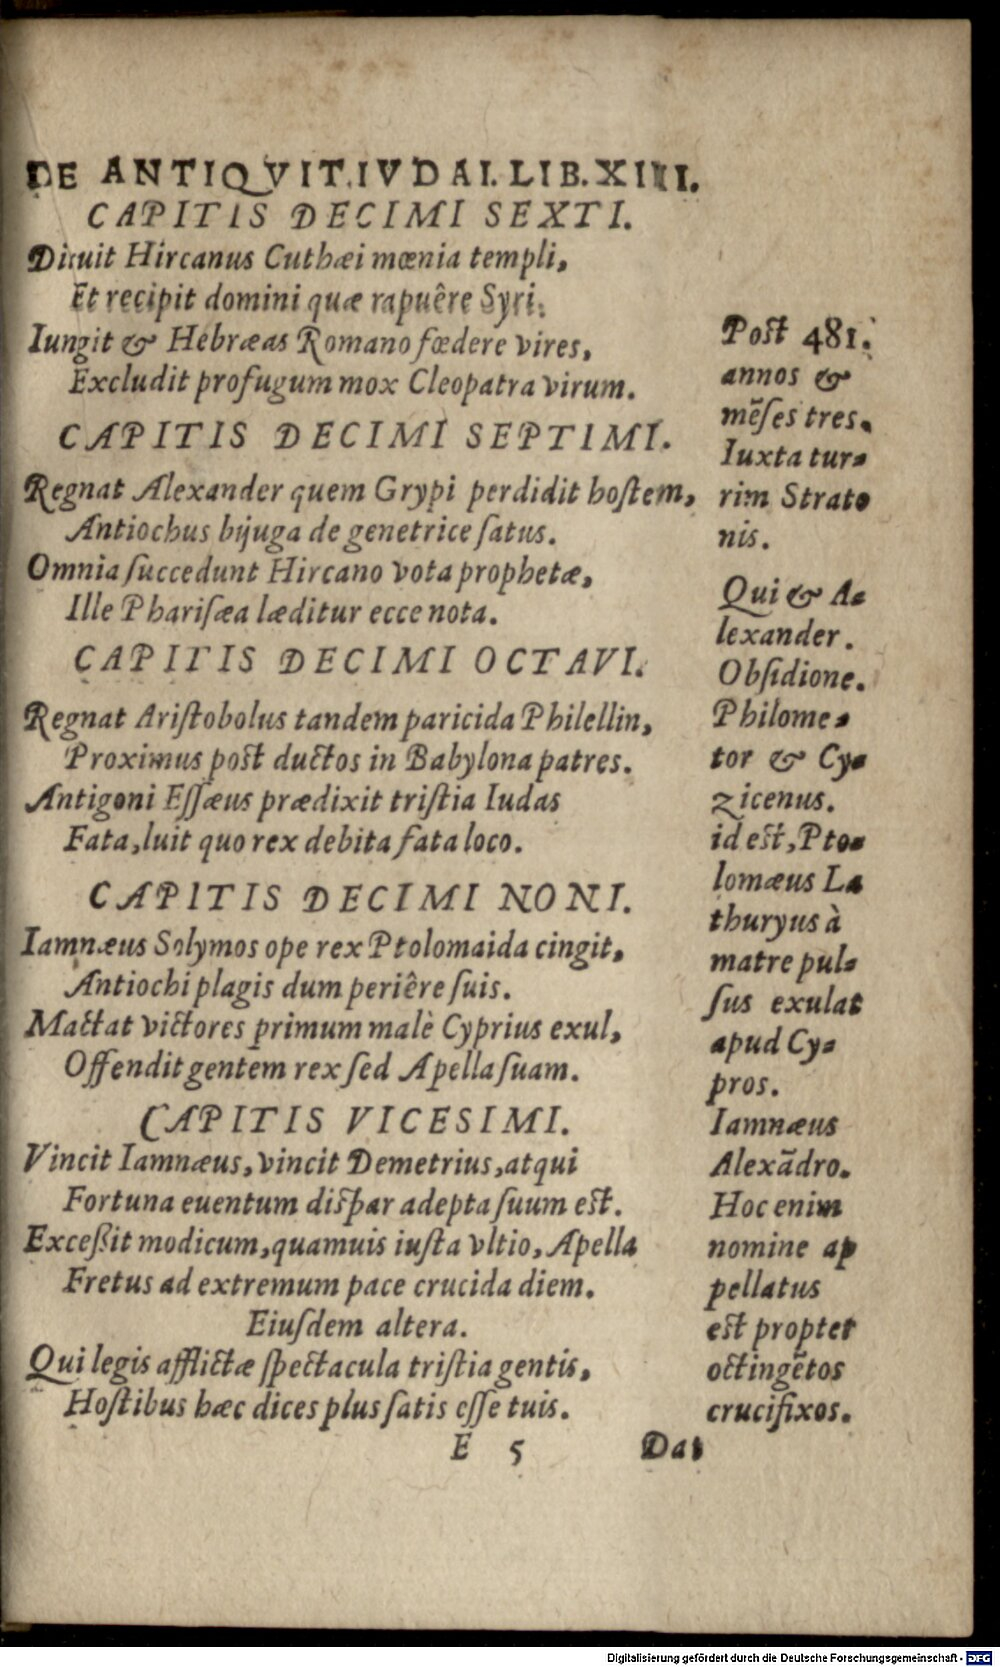 DE ANTIQVIT.IVDAI.LIB.XIIII.
CAPITIS DECIMI SEXTI.
Diruit Hircanus Cuthæi mœnia templi,
Et recipit domini quæ rapuêre Syri.
Iungit & Hebræas Romano fœdere vires,
Excludit profugum mox Cleopatra virum.
CAPITIS DECIMI SEPTIMI.
Regnat Alexander quem Grypi perdidit hoſtem,
Antiochus bijuga de genetrice ſatus.
Omnia ſuccedunt Hircano vota prophetæ,
Ille Phariſæa læditur ecce nota.
CAPITIS DECIMI OCTAVI.
Regnat Ariſtobolus tandem paricida Philellin,
Proximus poſt ductos in Babylona patres.
Antigoni Eſſæus prædixit triſtia Iudas
Fata, luit quo rex debita fata loco.
CAPITIS DECIMI NONI.
Iamnæus Solymos ope rex Ptolomaida cingit,
Antiochi plagis dum periêre ſuis.
Mactat victores primum malè Cyprius exul,
Offendit gentem rex ſed Apella ſuam.
CAPITIS VICESIMI.
Vincit Iamnæus, vincit Demetrius, atqui
Fortuna euentum diſpar adepta ſuum eſt.
Exceßit modicum, quamuis iuſta vltio, Apella
Fretus ad extremum pace crucida diem.
Eiuſdem altera.
Qui legis afflictæ ſpectacula triſtia gentis,
Hoſtibus hæc dices plus ſatis eſſe tuis.
E 5
Dat
Poſt 481.
annos &
mẽſes tres.
Iuxta tur-
rim Strato
nis.
Qui & A-
lexander.
Obſidione.
Philome-
tor & Cy-
zicenus.
id eſt, Pto-
lomæus La
thuryus à
matre pul-
ſus exulat
apud Cy-
pros.
Iamnæus
Alexãdro.
Hoc enim
nomine ap
pellatus
eſt propter
octingẽtos
crucifixos.
Digitalisierung gefördert durch die Deutsche Forschungsgemeinschaft - DFG